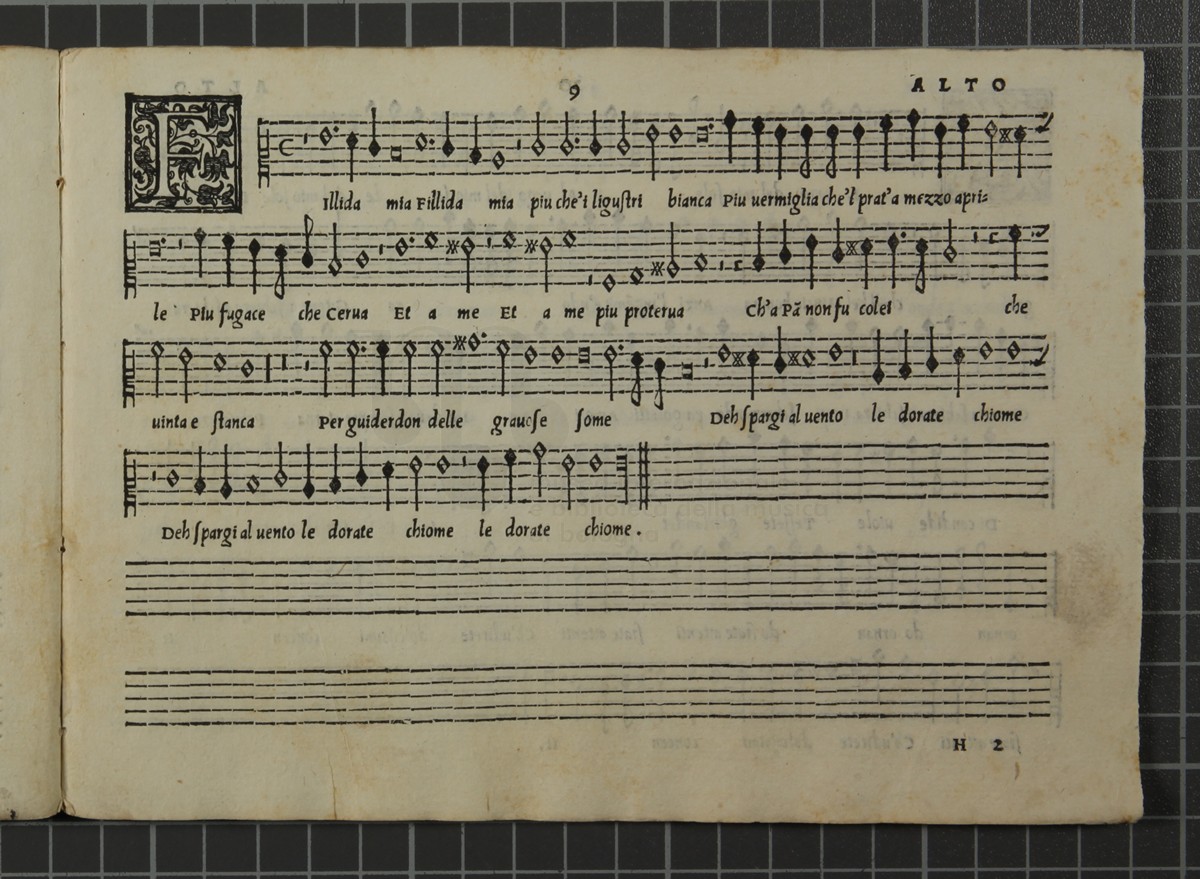 9
ALTO
FIllida mia Fillida mia piu che'i liguſtri bianca Piu uermiglia che'l prat'a mezzo apri=
le Piu fugace che Cerua Et a me Et a me piu proterua Ch'a Pā non fu colei che
uinta e ſtanca Per guiderdon delle grauoſe ſome Deh ſpargi al uento le dorate chiome
Deh ſpargi al uento le dorate chiome le dorate chiome.
e biblioteca della musica
bologna
H 2